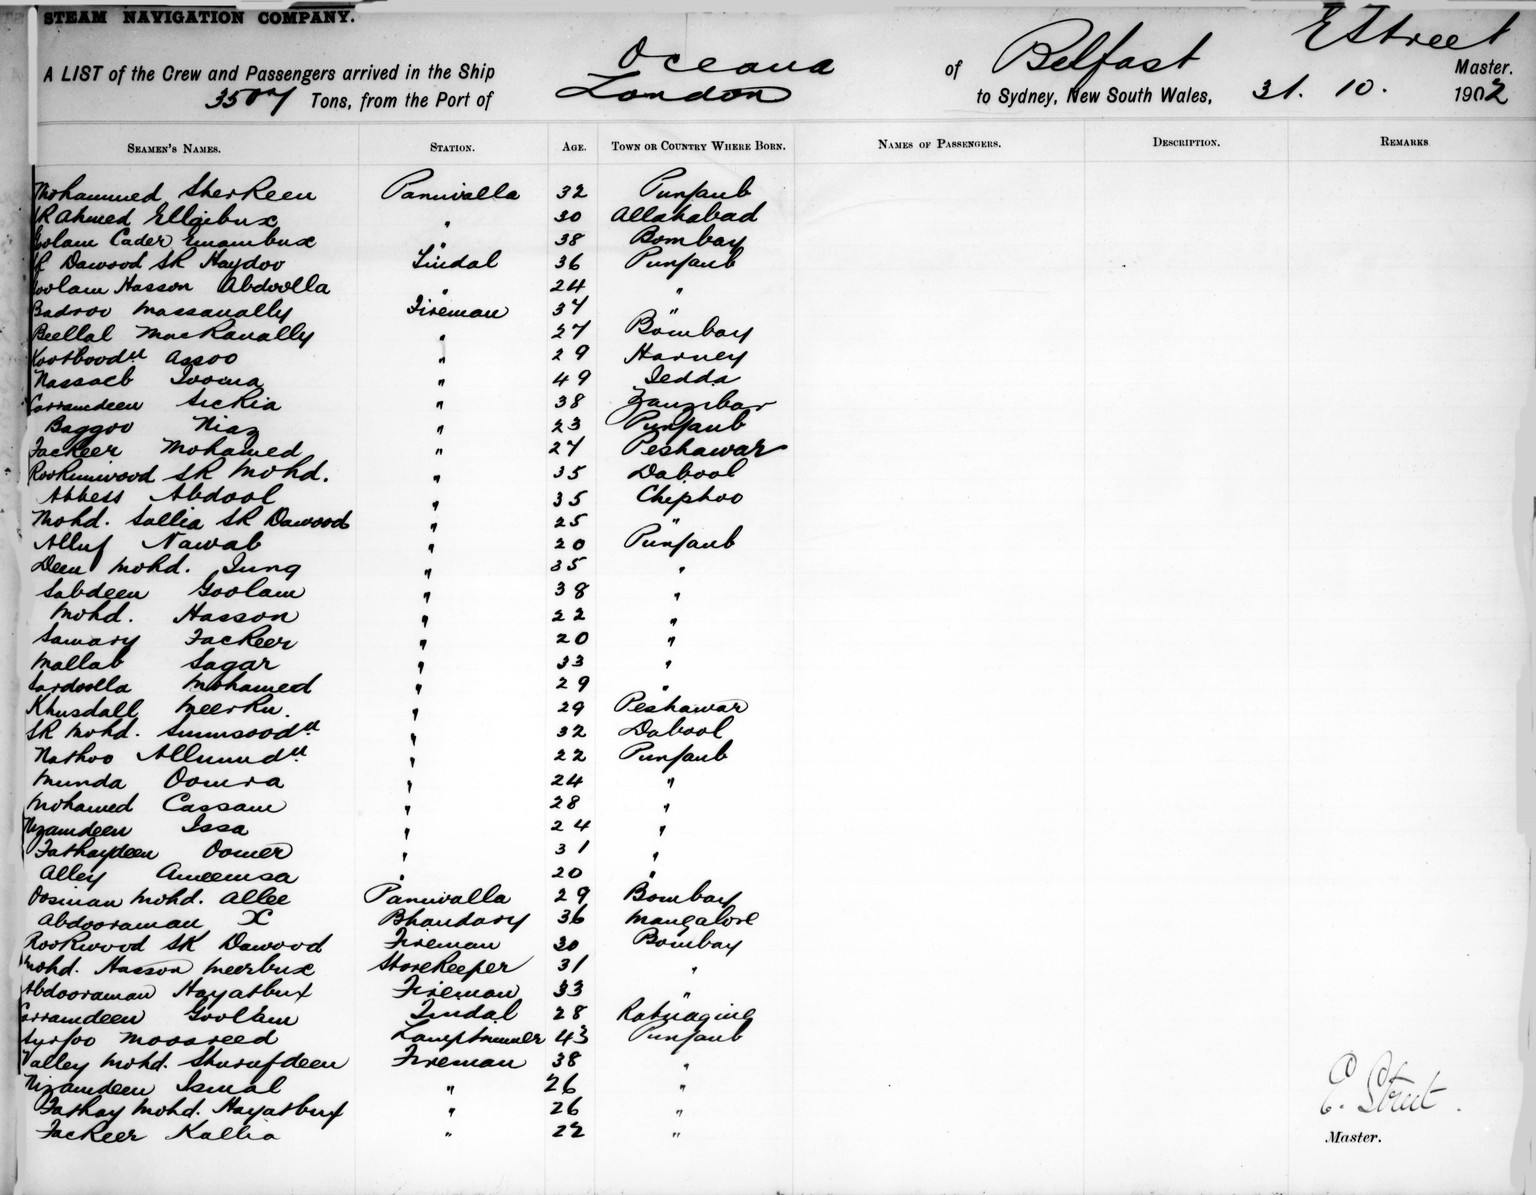 STEAM NAVIGATION COMPANY.
Oceana of Belfast E Street
A LIST of the Crew and Passengers arrived in the Ship Master.
Tons, from the Port of London to Sydney, New South Wales, 31. 10. 1902
SEAMEN'S NAMES. STATION. AGE. TOWN OR COUNTRY WHERE BORN. NAMES OF PASSENGERS. DESCRIPTION. REMARKS
Mohammed Sherkeen Pannivalla 32 Punjaub
SK Ahmed Ellaibux " 30 Allahabad
Golam Cader Emambux " 38 Bombay
SK Dawood SK Haydoo Tindal 36 Punjaub
Goolam Hasson Abdoolla " 24 "
Badroo Massanally Fireman 37 "
Beellal Mackanally " 27 Bombay
Assoo " 29 Harney
Nassaeb Tooma " 49 Jedda
Corramdeen Sickia " 38 Zanzibar
Baggoo Niaz " 23 Punjaub
Fackeer Mohamed " 27 Peshawar
SK Mohd. " 35 Dabool
Abbess Abdool " 35 Chiploo
Mohd. Sallia SK Dawood " 25 "
Alluf Nawab " 20 Punjaub
Deen Mohd. Jung " 35 "
Sabdeen Goolam " 38 "
Mohd. Hasson " 22 "
Samary Fackeer " 20 "
Mallab Sagar " 33 "
Sardoolla Mohamed " 29 "
Khusdall Meerku. " 29 Peshawar
SK Mohd. " 32 Dabool
Nathoo " 22 Punjaub
Munda Oomra " 24 "
Mohamed Cassam " 28 "
Nizamdeen Issa " 24 "
Fathaydeen Oomer " 31 "
Alley Ameemsa " 20 "
Oosman Mohd. Allee Pannivalla 29 Bombay
Abdooraman X Bhandary 36 Mangalore
Rookwood SK Dawood Fireman 30 Bombay
Mohd. Hasson Meerbux Storekeeper 31 "
Abdooraman Hayatbux Fireman 33 "
Corramdeen Goolam Tindal 28 Ratnagire
Syrfoo Mooreed Lamptrimmer 43 Punjaub
Valley Mohd. Shurufdeen Fireman 38 "
Nizamdeen Ismal " 26 "
Fathay Mohd. Hayatbux " 26 "
Fackeer Kallia " 22 "
E. Street.
Master.